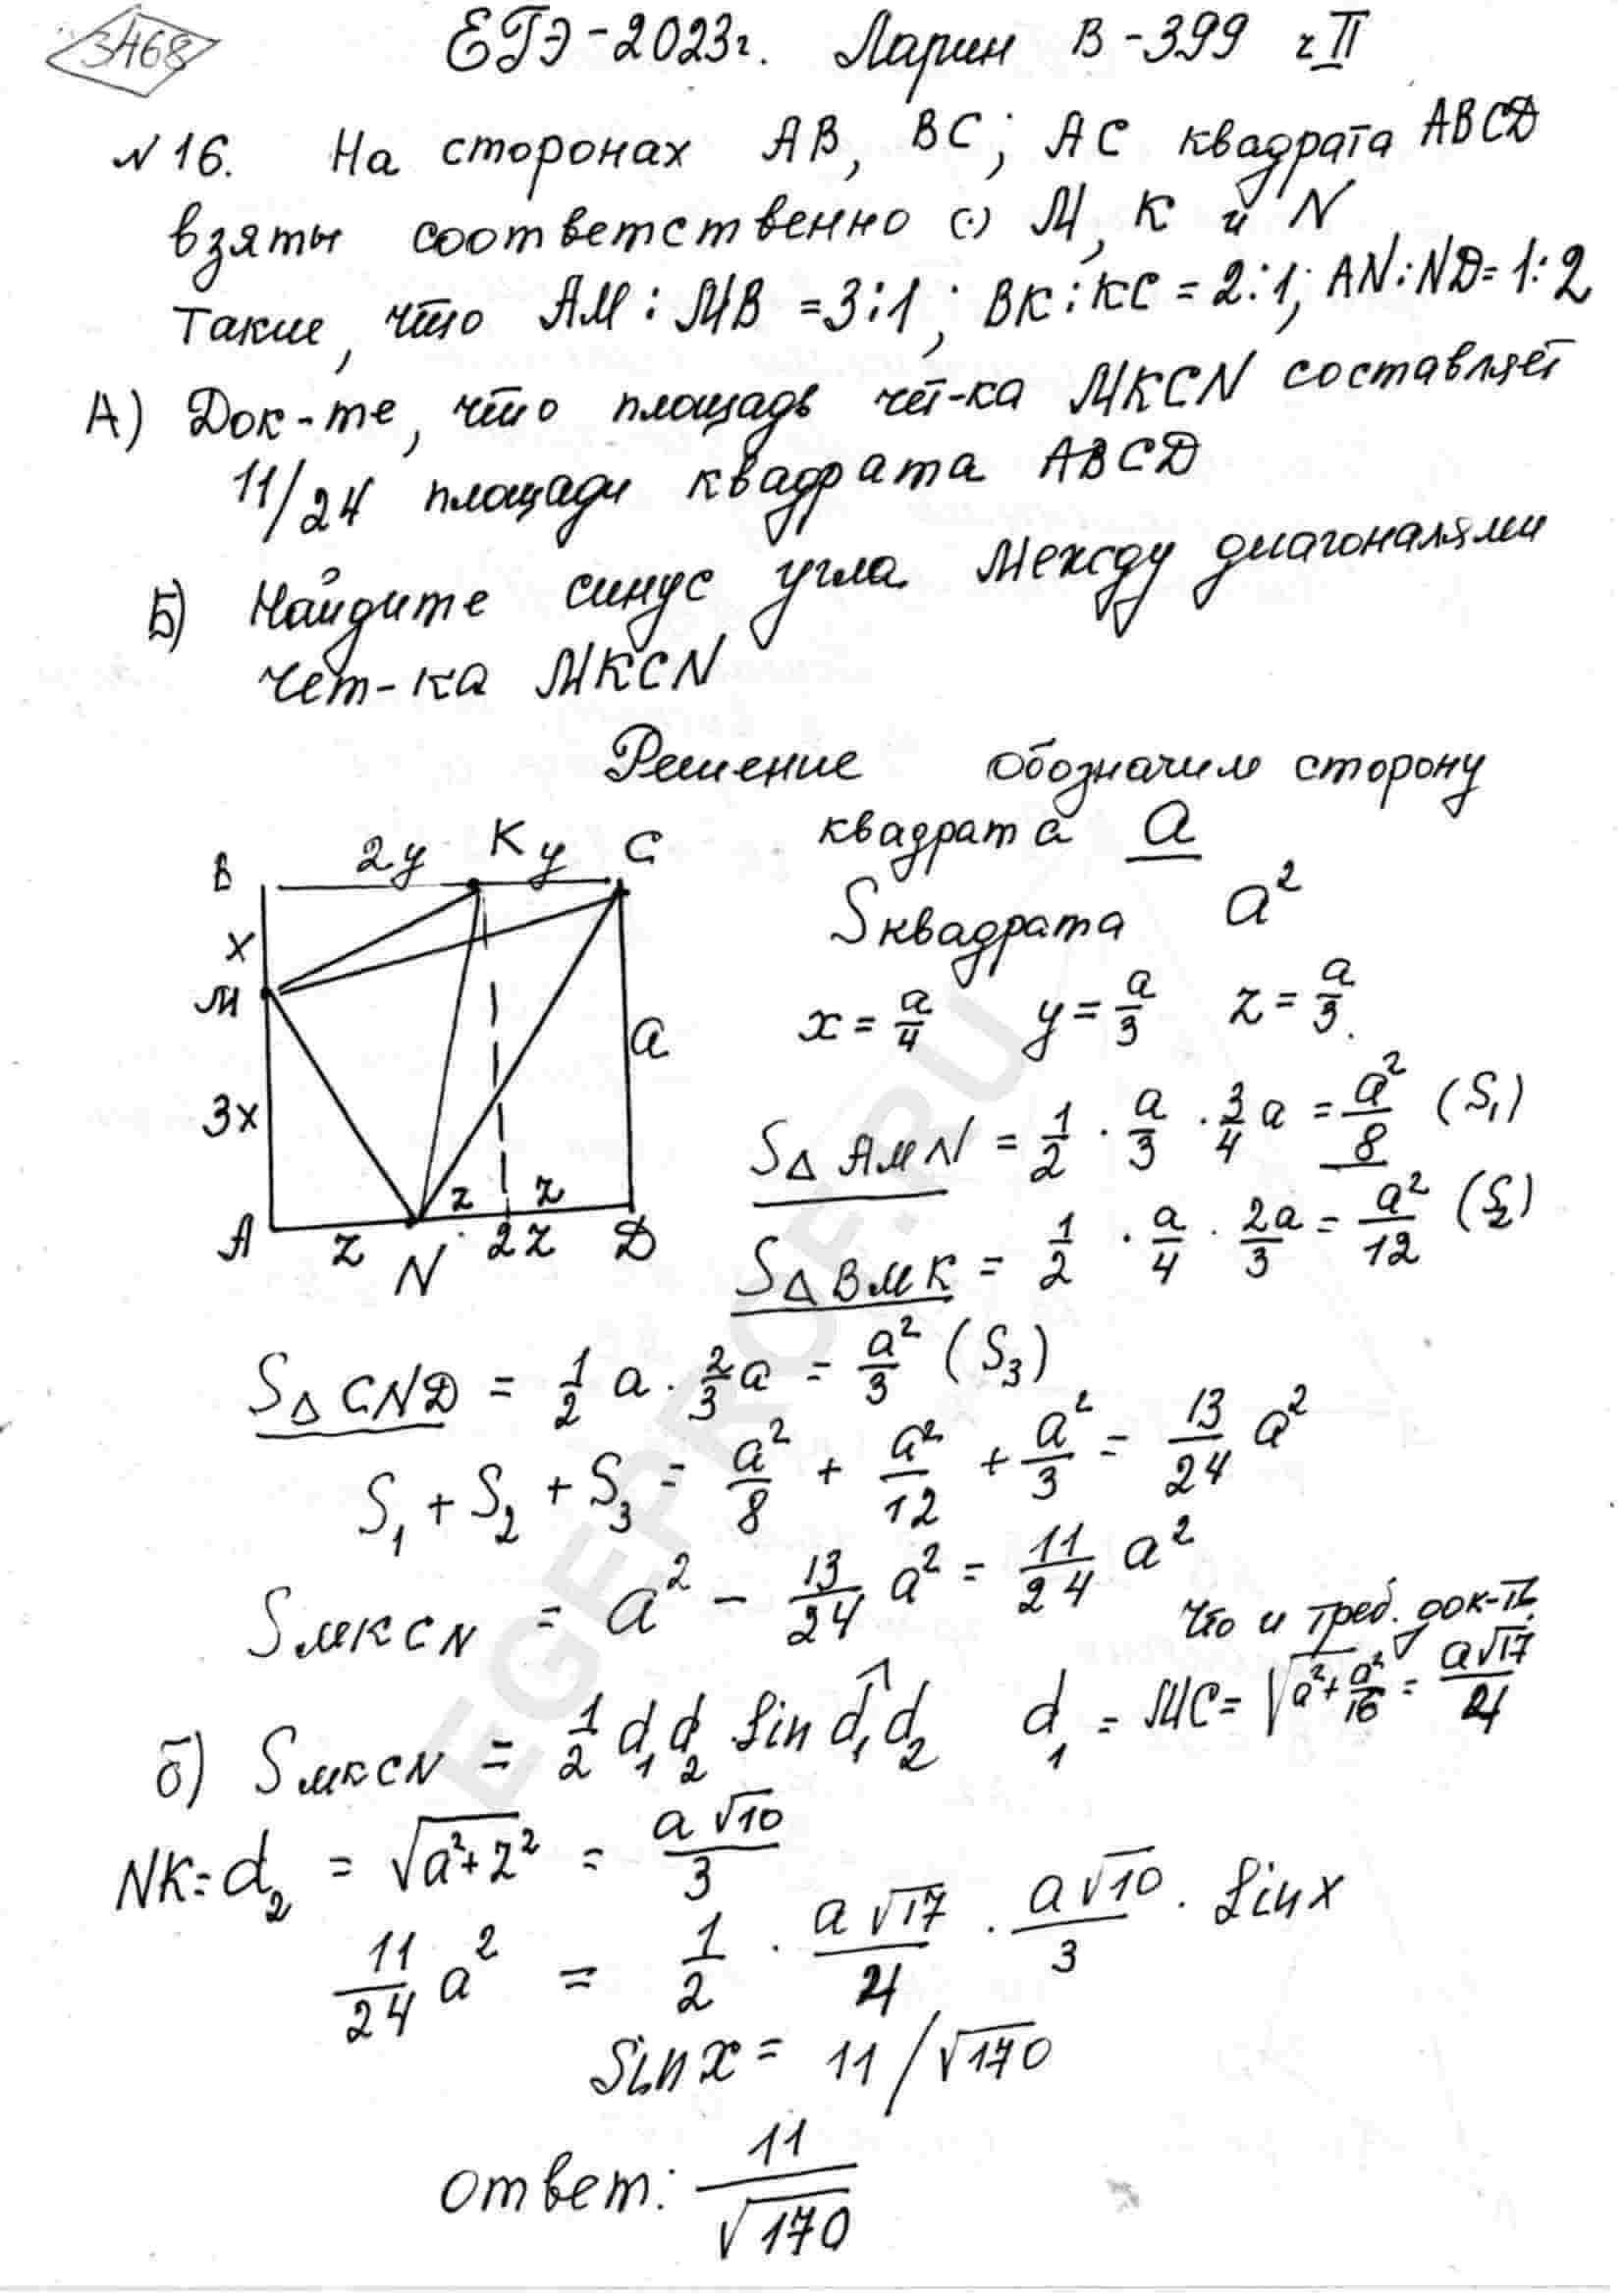 3468
ЕГЭ-2023г. Ларин В-399 ч II
№16. На сторонах АВ, ВС; АС квадрата ABCD
взяты соответственно (·) М, К и N
Такие, что АМ : МВ = 3:1; ВК : КС = 2:1; AN : ND = 1:2
А) Док-те, что площадь чет-ка MKCN составляет
11/24 площади квадрата ABCD
Б) Найдите синус угла между диагоналями
чет-ка MKCN
Решение обозначим сторону
квадрата a
S квадрата a²
x = a/4 y = a/3 z = a/3.
B 2y K y C
x
M
a
3x
z z
A z N 2z D
S△AMN = 1/2 · a/3 · 3/4 a = a²/8 (S₁)
S△BMK = 1/2 · a/4 · 2a/3 = a²/12 (S₂)
S△CND = 1/2 a · 2/3 a = a²/3 (S₃)
S₁ + S₂ + S₃ = a²/8 + a²/12 + a²/3 = 13/24 a²
S MKCN = a² - 13/24 a² = 11/24 a²
Что и треб. док-ть
б) S MKCN = 1/2 d₁d₂ Sin d₁d₂ d₁ = MC = √(a² + a²/16) = a√17/4
NK = d₂ = √(a² + z²) = a√10/3
11/24 a² = 1/2 · a√17/4 · a√10/3 · Sin x
Sin x = 11/√170
ответ: 11/√170
EGEPROF.RU